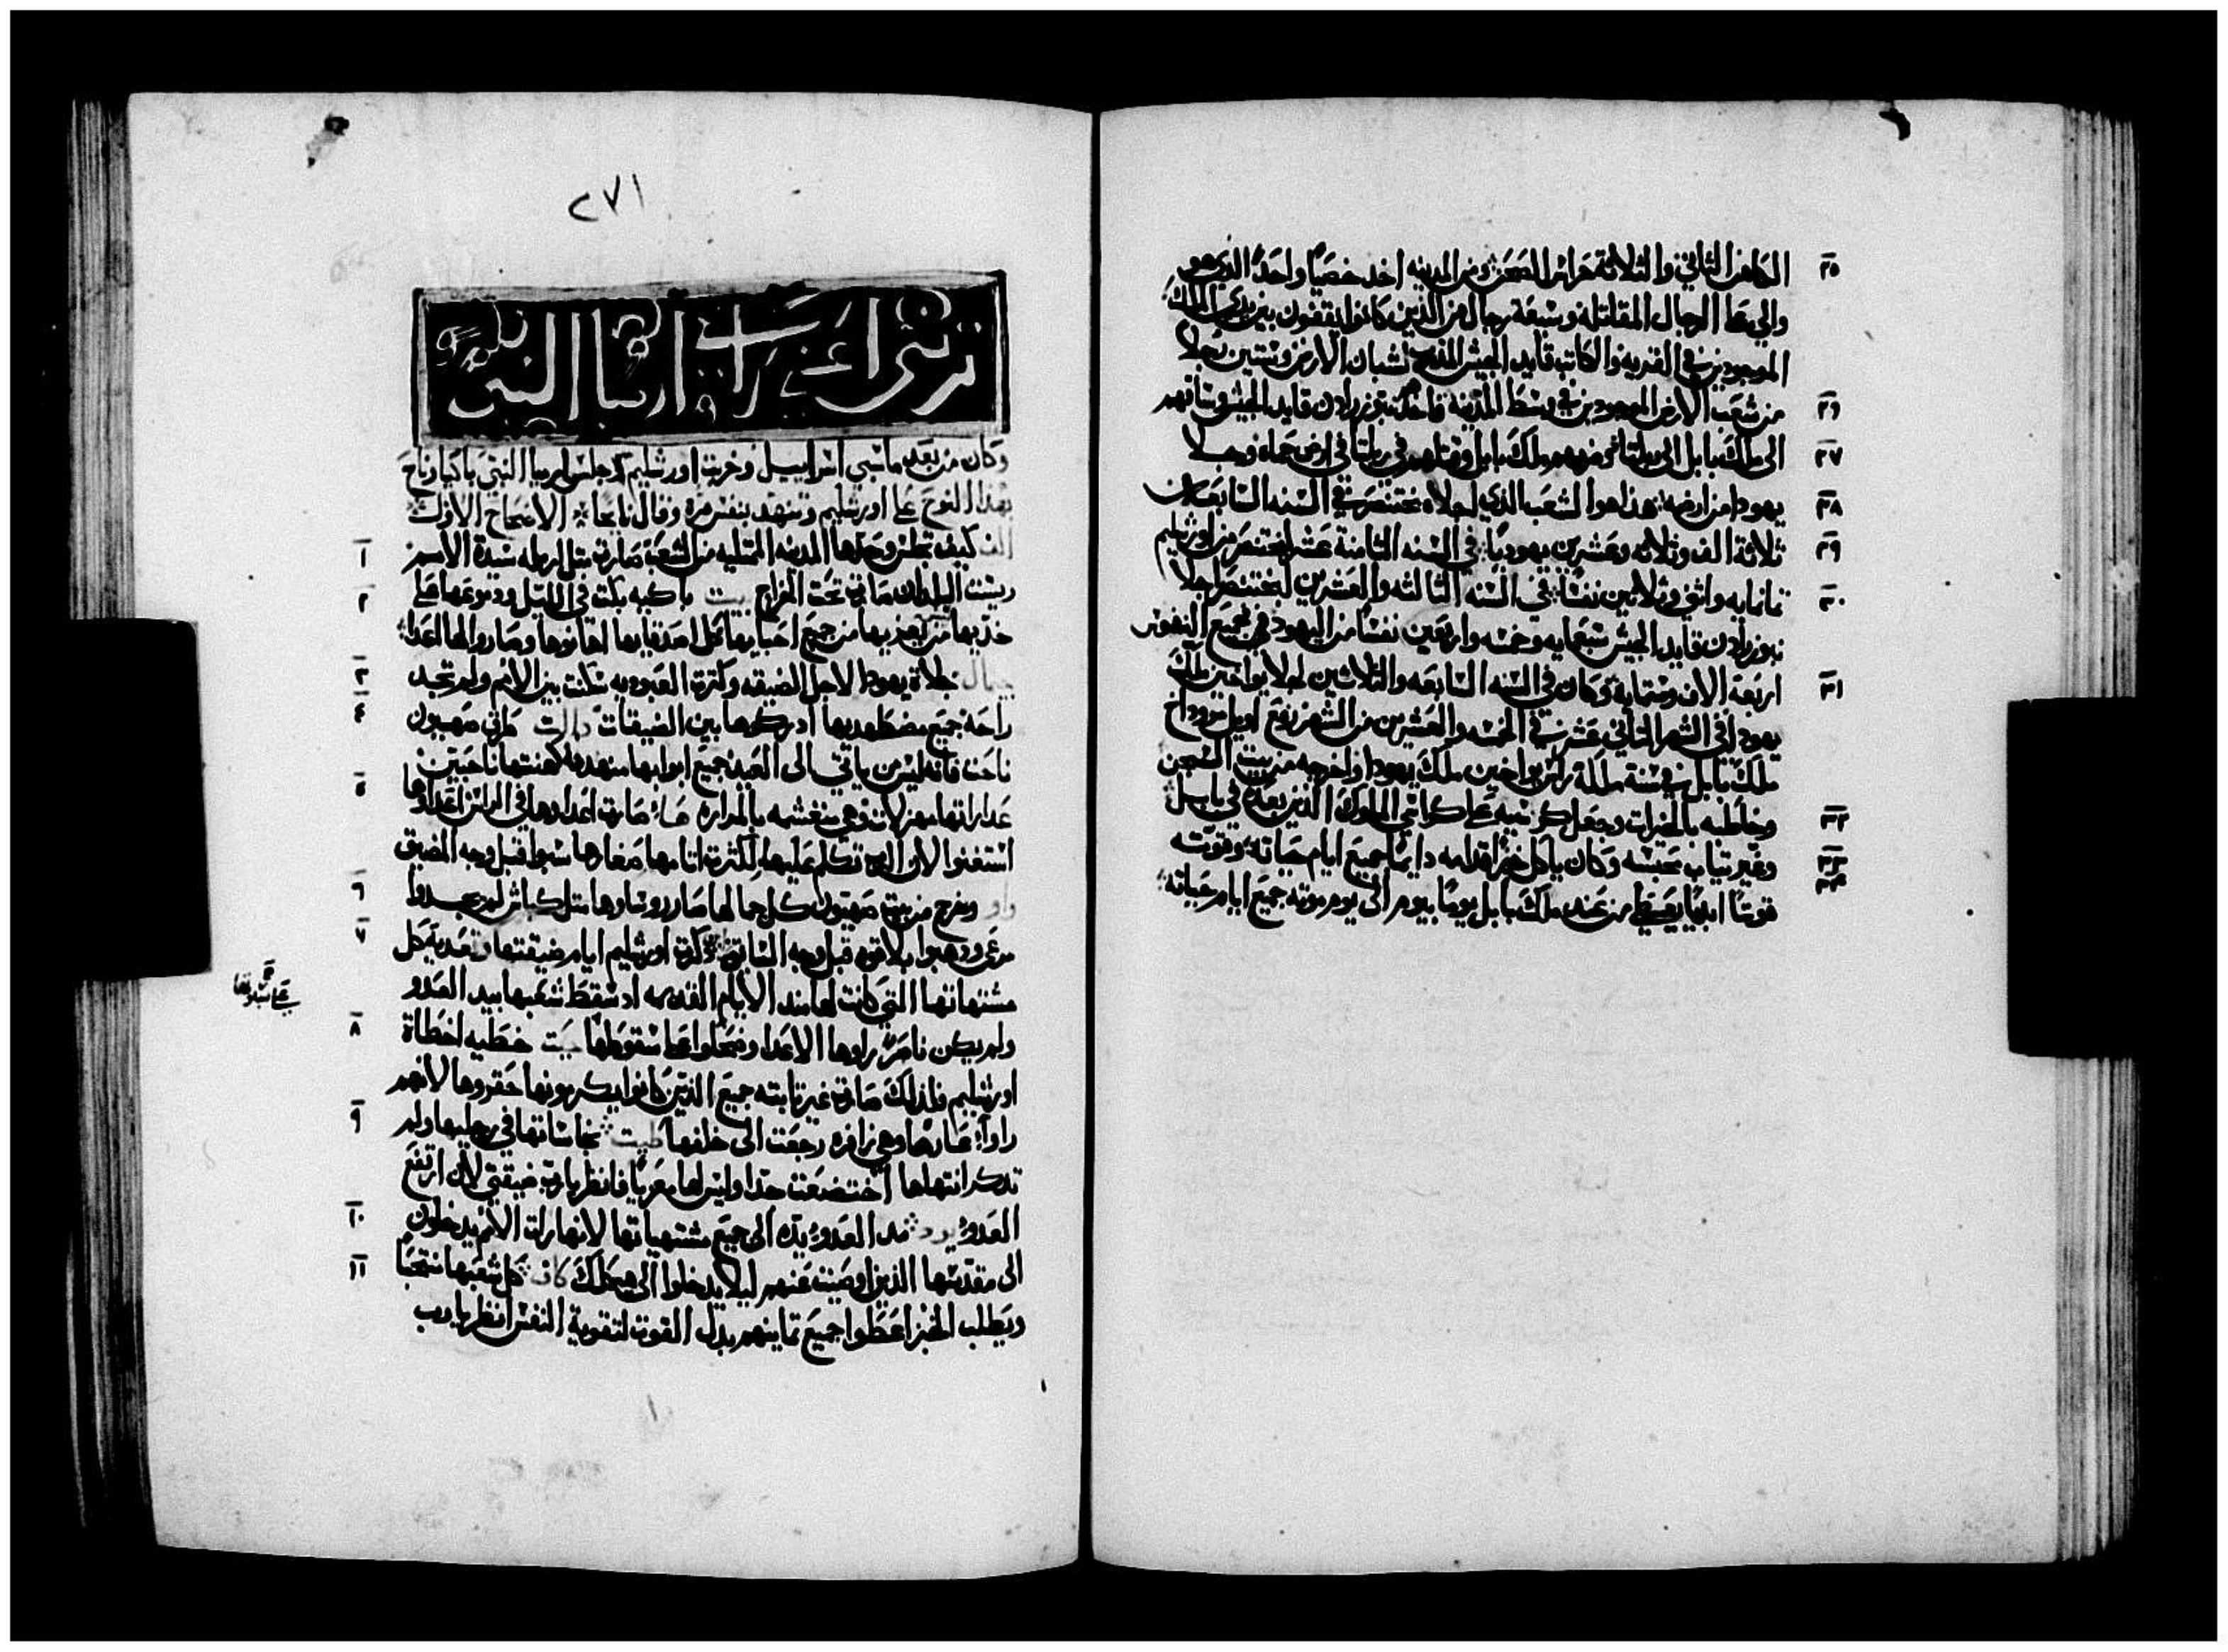 الكاهن الثاني والثلاثة حراس الصحن ومن المدينه اخد خصيا واحدا الذي هو
٢٥
والي على الرجال المقاتله وسبعة رجال من الذين كانوا يقفون بين يدي الملك
الموجودين في القريه والكاتب قايد الجيش لشبان الارض وستين رجلا
من شعب الارض الموجودين في وسط المدينه فاخد نبوزرادن قايد الجيش وساقهم
٢٦
الى ملك بابل الى ربلتا فضربهم ملك بابل وقتلهم في ربلتا في ارض حماه وجلا
٢٧
يهودا من ارضه هذا هو الشعب الذي اجلاه بختنصر في السنه السابعه
٢٨
ثلاثة الف وثلاثه وعشرين يهوديا في السنه الثامنة عشر لبختنصر من اورشليم
٢٩
تمانمايه واثني وثلاثين نفسا في السنه الثالثه والعشرين لبختنصر اجلا
٣٠
نبوزرادن قايد الجيش سبعمايه وخمسه واربعين نفسا من اليهود فجميع النفوس
اربعة الاف وستمايه وكان في السنه السابعه والثلاثين لجلا يواخين ملك
٣١
يهودا في الشهر الثاني عشر في الخمسه والعشرين من الشهر رفع اويل مروداخ
ملك بابل في سنة ملكه راس يواخين ملك يهودا واخرجه من بيت السجن
وخاطبه بالخيرات وجعل كرسيه على كراسي الملوك الذين بعده في بابل
٣٢
وغير تياب محبسه وكان ياكل خبزا قدامه دايما جميع ايام حياته وقوته
٣٣
قوتا ابديا يعطي من عند ملك بابل يوما بيوم الى يوم موته جميع ايام حياته
٣٤
٢٧١
ارميا النبي
وكان من بعد ما سبي اسراييل وخربت اورشليم جلس ارميا النبي باكيا وناح
بهدا النوح على اورشليم وتنهد بنفس مره وقال نايحا الاصحاح الاول
كيف تجلس وحدها المدينه الممتليه من الشعب صارت متل ارمله سيدة الامم
١
ريست البلدان صارت تحت الخراج باكيه بكت في الليل ودموعها على
٢
خديها من يعزيها من جميع احبايها كل اصدقايها اهانوها وصاروا لها اعدا
جلاة يهودا لاجل الضيقه وكترة العبوديه سكنت بين الامم ولم تجد
٣
راحه جميع مضطهديها ادركوها بين الضيقات طرق صهيون
٤
ناحت فانه ليس من ياتي الى العيد جميع ابوابها منهدمه كهنتها ناحبين
عداراتها وهي منغشمه بالمراره صارت اعداوها في الراس اعداوها
٥
استغنوا لان الرب تكلم عليها لكثرت اتامها صغارها سبوا قبل وجه المضيق
وخرج من بيت صهيون كل جمالها صار روساوها متل كباش لم يجدوا
٦
مرعى ودهبوا بلا قوه قبل وجه السايق دكرت اورشليم ايام ضيقتها كل
٧
مشتهاتها التي كانت لها مند الايام القديمه اد سقط شعبها بيد العدو
ولم يكن ناصر راوها الاعدا وضحكوا على سقوطها خطيه اخطاة
٨
اورشليم فلدلك صارت غير تابته جميع الذين كانوا يكرمونها حقروها لانهم
راوا عارها وهي زافره رجعت الى خلفها نجاساتها في رجليها ولم
٩
تدكر انتهاها اختضعت جدا وليس لها معزيا فانظر يارب ضيقتي لان ارتفع
العدو مد العدو يده الى جميع مشتهياتها لانها رات الامم يدخلون
١٠
الى مقدسها الذين اوصيت عنهم ليلا يدخلوا الى هيكلك كل شعبها ينتحب
١١
ويطلب الخبز اعطوا جميع تمايينهم بدل القوت لتقوية النفس انظر يارب